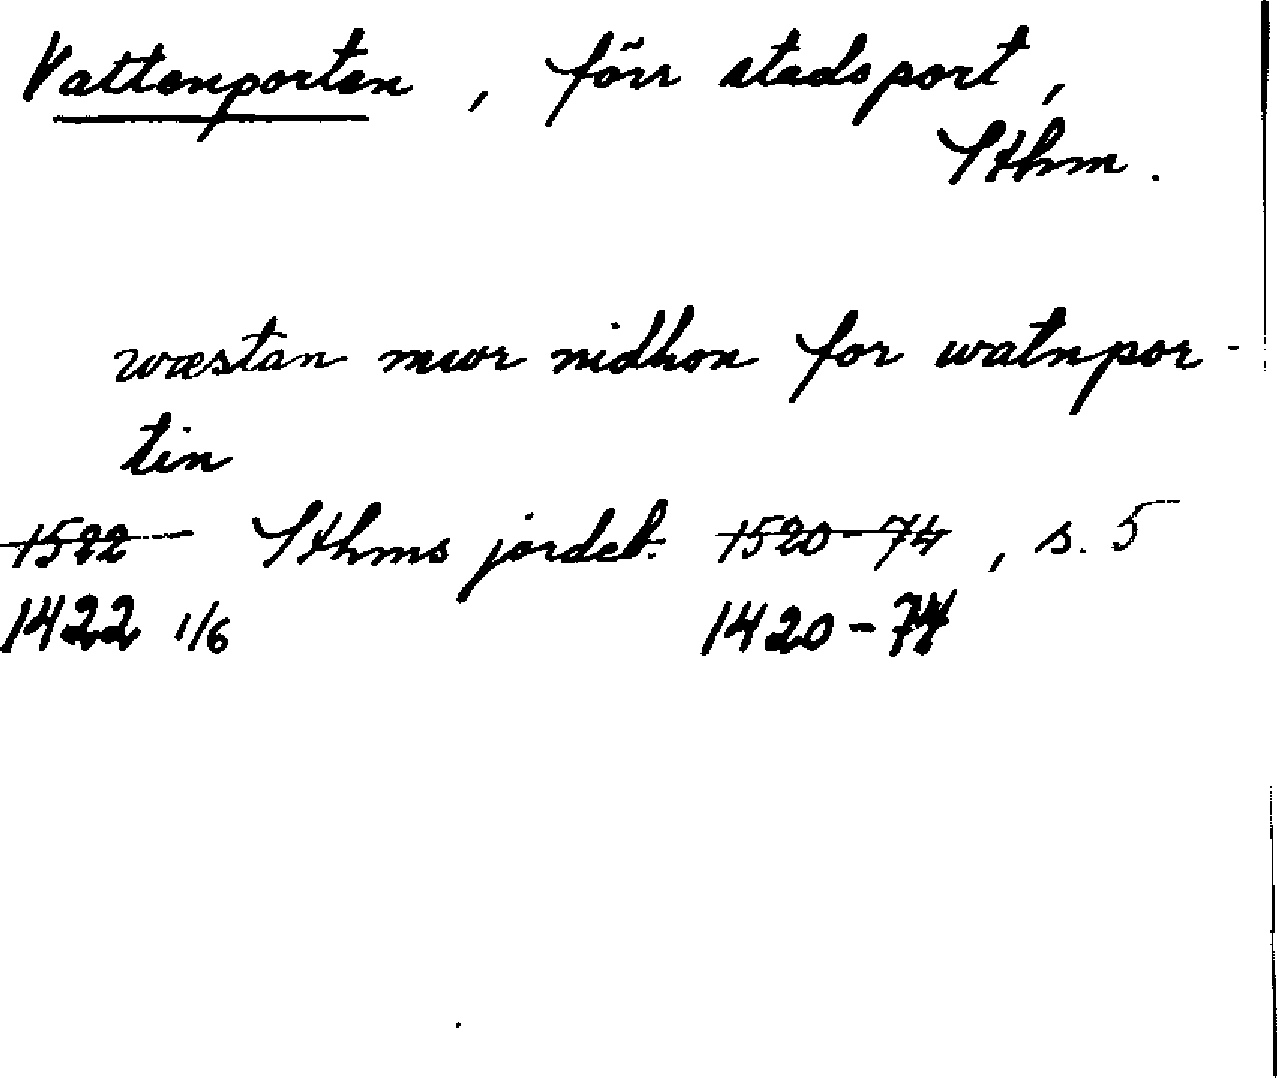 Vattenporten, förr stadsport,
Sthm.
wæstan mwr nidhon for watnpor-
tin
1522 Sthms jordeb. 1520-74, s. 5
1422 1/6 1420-74